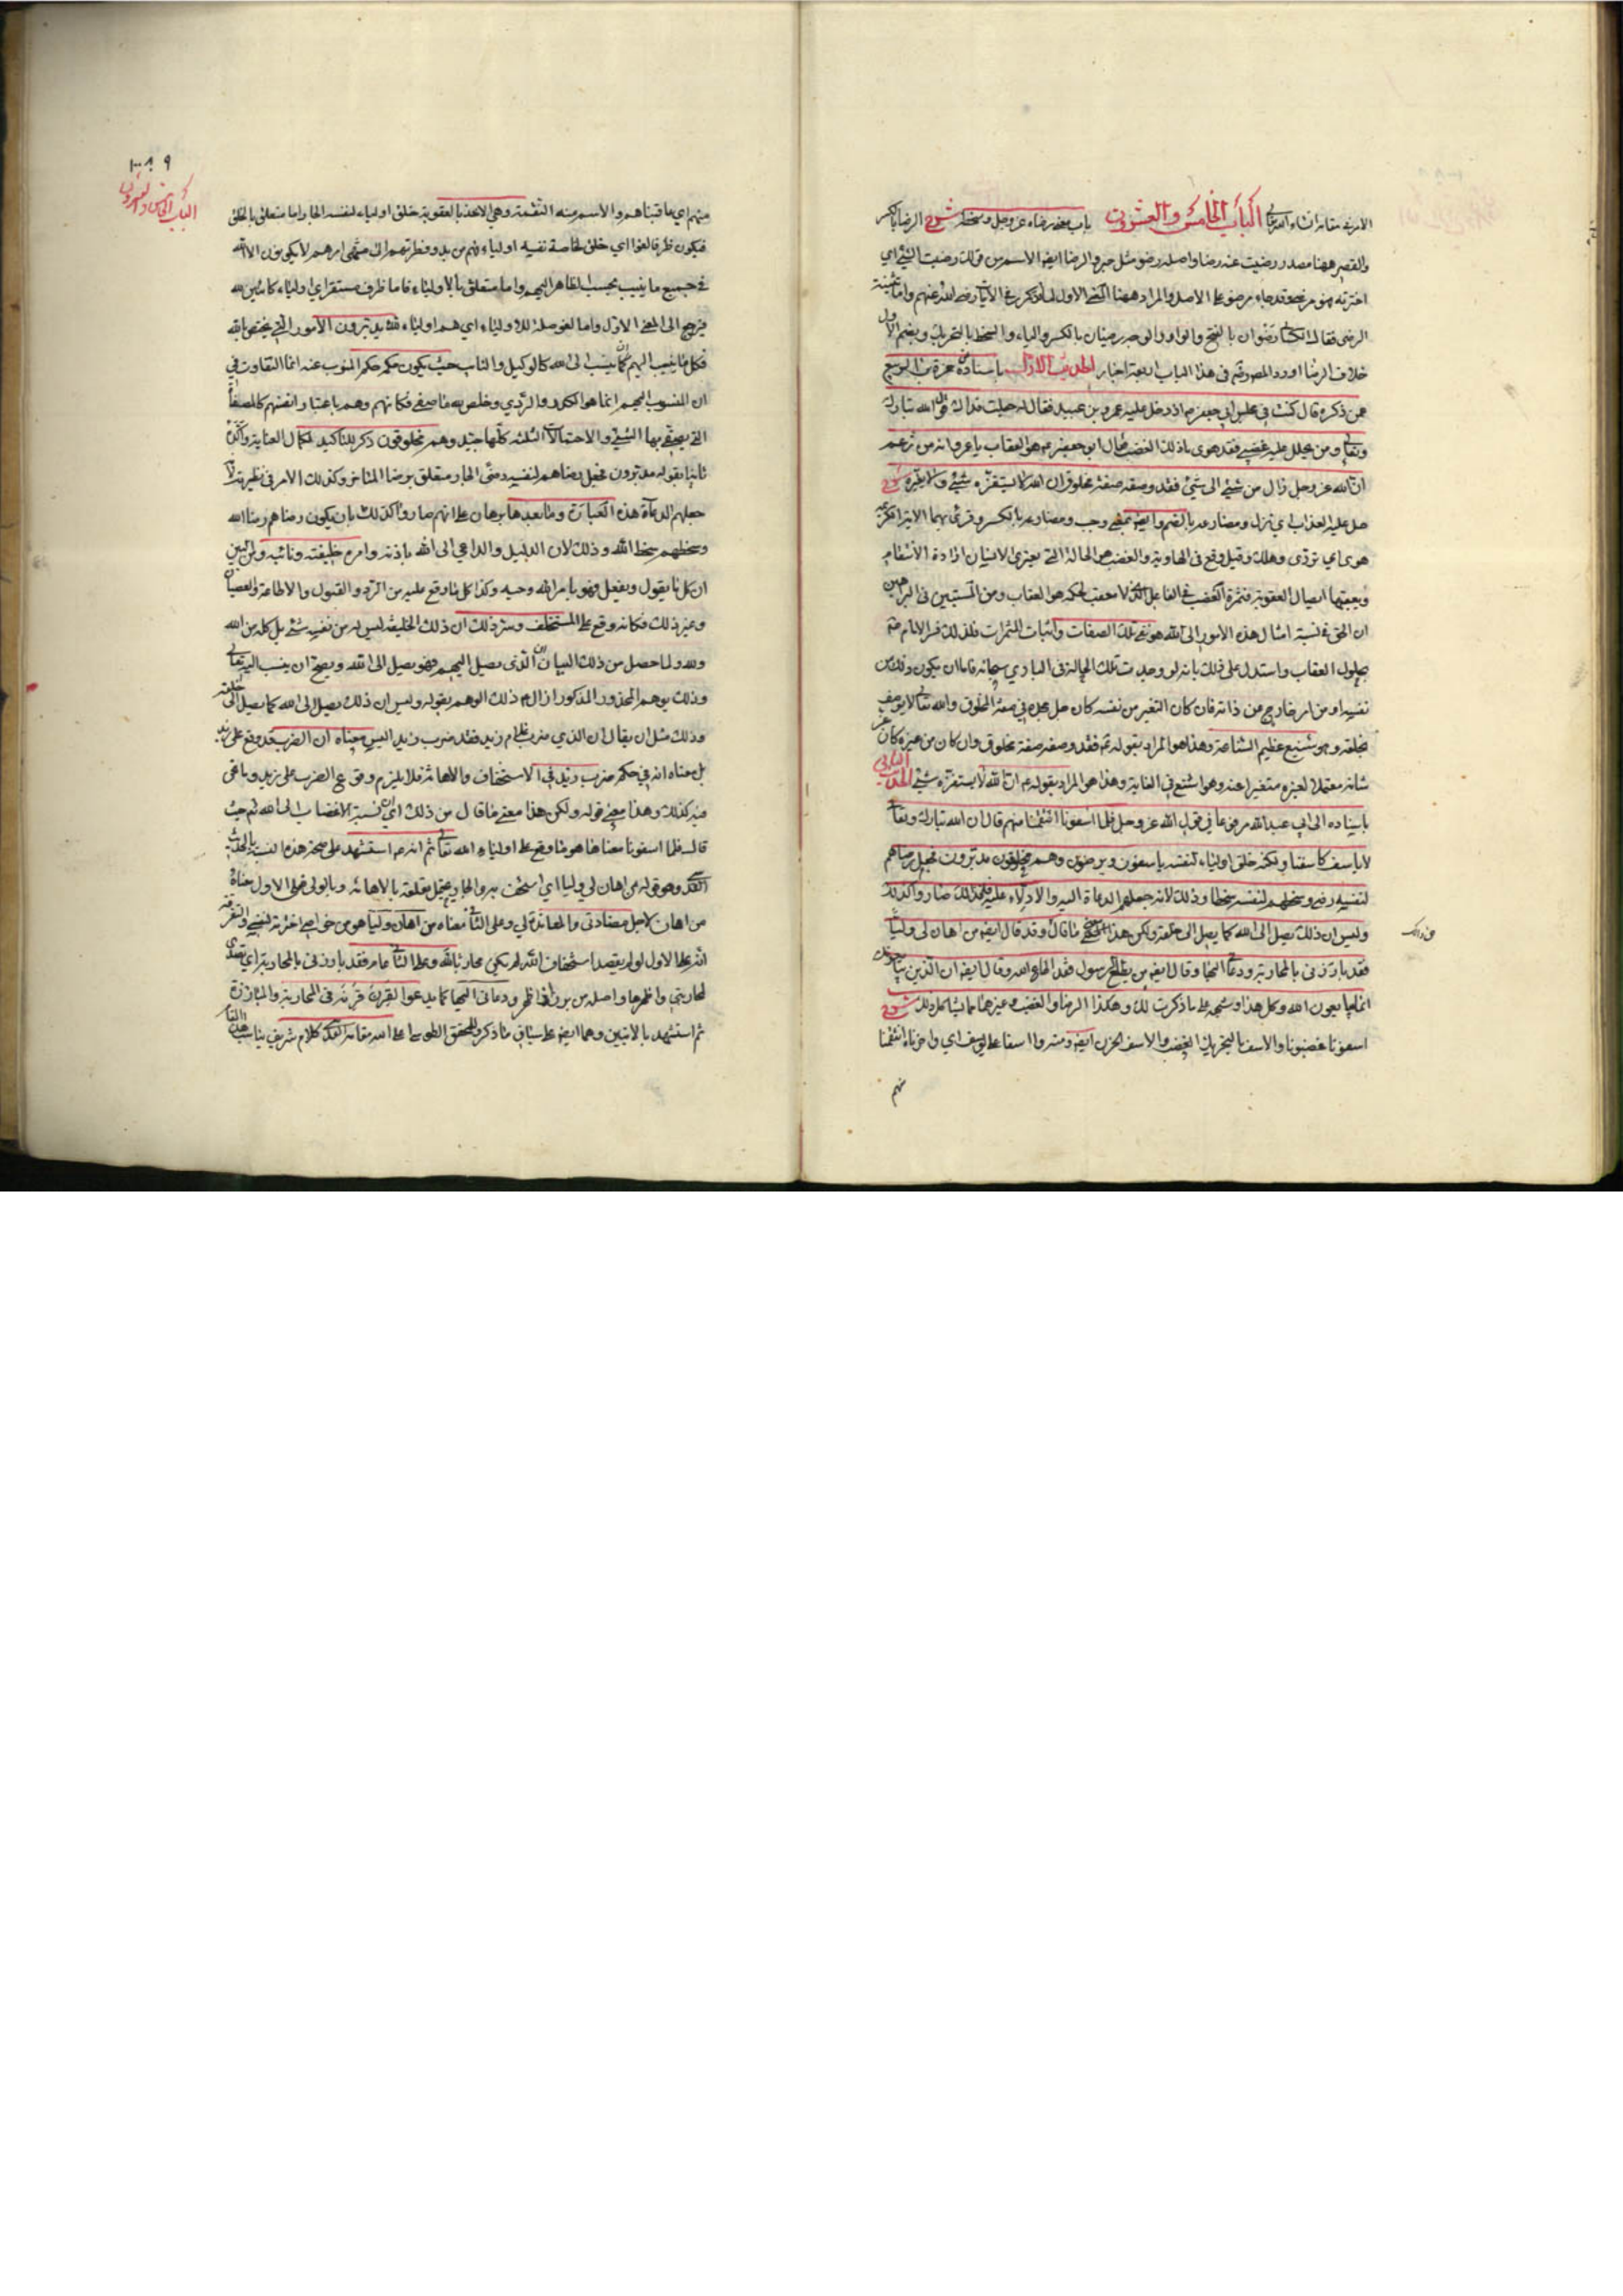 الامر في مقامه انشاء الله تعالى الباب الخامس والعشرون باب معنى رضاه عز وجل وسخطه شرح الرضا بالكسر
والقصر ههنا مصدر رضيت عنه رضا واصله رضو مثل حبر والرضا ايضا الاسم من قولك رضيت الشيء اي
اخترته فهو مرضي وقد جاء مرضو على الاصل والمراد ههنا المعنى الاول لما ذكر في الآثار رضي الله عنهم واما تثنية
الرضى فقال الكسائي رضوان بالفتح والواو والوجه رضيان بالكسر والياء والسخط بالتحريك وبضم الاول
خلاف الرضا اورد المصنف في هذا الباب اربعة اخبار الحديث الاول باسناده عن حمزة بن الربيع
عمن ذكره قال كنت في مجلس ابي جعفر ع اذ دخل عليه عمرو بن عبيد فقال له جعلت فداك قول الله تبارك
وتعالى ومن يحلل عليه غضبي فقد هوى ما ذلك الغضب فقال ابو جعفر ع هو العقاب يا عمرو انه من زعم
ان الله عز وجل زال من شيء الى شيء فقد وصفه صفة مخلوق ان الله لا يستفزه شيء ولا يغيره شرح
حل عليه العذاب اي نزل ومضارعه بالضم وايضا بمعنى وجب ومضارعه بالكسر وقرئ بهما الآية الكريمة
هوى اي تردى وهلك وقيل وقع في الهاوية والغضب هو الحالة التي يعتري الانسان ارادة الانتقام
ويعقبها ايصال العقوبة فثمرة الغضب في الفاعل الذي لا معقب لحكمه هو العقاب ومن المستبين في البراهين
ان الحق في نسبة امثال هذه الامور الى الله هو نفي تلك الصفات واثبات الثمرات فلذلك فسر الامام ع
بحلول العقاب واستدل على ذلك بانه لو وجدت تلك الحالة في الباري سبحانه فاما ان يكون ذلك من
نفسه او من امر خارج عن ذاته فان كان التغير من نفسه كان حل محله في صفة المخلوق والله تعالى لا يوصف
بخلقه وهو شنيع عظيم الشناعة وهذا هو المراد بقوله ع فقد وصفه صفة مخلوق وان كان من غيره كان عز
شانه معتملا لغيره متغيرا عنه وهو اشنع في الغاية وهذا هو المراد بقوله ع ان الله لا يستفزه شيء الحديث الثاني
باسناده الى ابي عبد الله مرفوعا في قول الله عز وجل فلما اسفونا انتقمنا منهم قال ان الله تبارك وتعالى
لا ياسف كاسفنا ولكنه خلق اولياء لنفسه ياسفون ويرضون وهم مخلوقون مدبرون فجعل رضاهم
لنفسه رضى وسخطهم لنفسه سخطا وذلك لانه جعلهم الدعاة اليه والادلاء عليه فلذلك صاروا كذلك
وليس ان ذلك يصل الى الله كما يصل الى خلقه ولكن هذا معنى ما قال من ذلك وقد قال ايضا من اهان لي وليا
فقد بارزني بالمحاربة ودعاني اليها وقال ايضا من يطع الرسول فقد اطاع الله وقال ايضا ان الذين يبايعونك
انما يبايعون الله وكل هذا وشبهه على ما ذكرت لك وهكذا الرضا والغضب وغيرهما مما يشاكل ذلك شرح
اسفونا غضبونا والاسف بالتحريك الغضب والاسف الحزن ايضا ومنه وا اسفا على يوسف اي وا حزناه انتقمنا
منهم
٩
الباب الخامس والعشرون
منهم اي عاقبناهم والاسم منه النقمة وهي الاخذ بالعقوبة خلق اولياء لنفسه الجار اما متعلق بالخلق
فيكون ظرفا لغوا اي خلق لخاصة نفسه اولياء
في جميع ما ينسب بحسب الظاهر اليهم واما متعلق بالاولياء فاما ظرف مستقر اي اولياء كائنين لله
فيرجع الى المعنى الاول واما لغو صلة للاولياء اي هم اولياء لله مدبرون الامور التي يختص بالله
فكل ما ينسب اليهم كانه ينسب الى الله كالوكيل والنائب حيث يكون حكمه حكم المنوب عنه انما التفاوت في
ان المنسوب اليهم انما هو
التي يصح بها الشيء والاحتمالات الثلثة كلها جيد وهم مخلوقون ذكر للتاكيد لكمال العناية
ثانيا بقوله مدبرون فجعل رضاهم لنفسه رضى الجار متعلق برضا المتاخر وكذلك الامر في نظيره
جعلهم الدعاة هذه العبارة وما بعدها برهان على انهم صاروا كذلك بان يكون رضاهم رضا الله
وسخطهم سخط الله وذلك لان الدليل والداعي الى الله باذنه وامره خليفته ونائبه
ان كل ما يقول ويفعل فهو بامر الله وحيه وكذا كل ما وقع عليه من الرد والقبول والاطاعة والعصيان
وغير ذلك فكانه وقع على المستخلف وسر ذلك ان ذلك الخليفة ليس له من نفسه شيء بل كله من الله
ولله ولما حصل من ذلك البيان ان الذي يصل اليهم فهو يصل الى الله ويصح ان ينسب اليه تعالى
وذلك يوهم المحذور المذكور ازال ع ذلك الوهم بقوله وليس ان ذلك يصل الى الله كما يصل الى خلقه
وذلك مثل ان يقال ان الذي ضرب غلام زيد فقد ضرب زيدا ليس معناه ان الضرب قد وقع على زيد
بل معناه انه في حكم ضرب زيد في الاستخفاف والاهانة فلا يلزم وقوع الضرب على زيد وما نحن
فيه كذلك وهذا معنى قوله ولكن هذا معنى ما قال من ذلك اي من نسبة الاغضاب الى الله حيث
قال فلما اسفونا معناها هو ما وقع على اولياء الله تعالى ثم انه ع استشهد على صحة هذه النسبة بالحديث
القدسي وهو قوله من اهان لي وليا اي استخف به والجار يحتمل تعلقه بالاهانة وبالولي فعلى الاول معناه
من اهان لاجل مضادتي والمعاندة لي وعلى الثاني معناه من اهان وليا هو من خواصي اخترته لنفسي والفرق
انه على الاول لو لم يقصد استخفاف الله لم يكن محاربا لله وعلى الثاني عام فقد بارزني بالمحاربة اي تصدى
لمحاربتي واظهرها واصله من برز اذا ظهر ودعاني اليها كما يدعو القرن قرنه في المحاربة والمبارزة
ثم استشهد بالآيتين وهما ايضا على سياق ما ذكر وللمحقق الطوسي اعلى الله مقامه القدسي كلام شريف يناسب هذا المقام